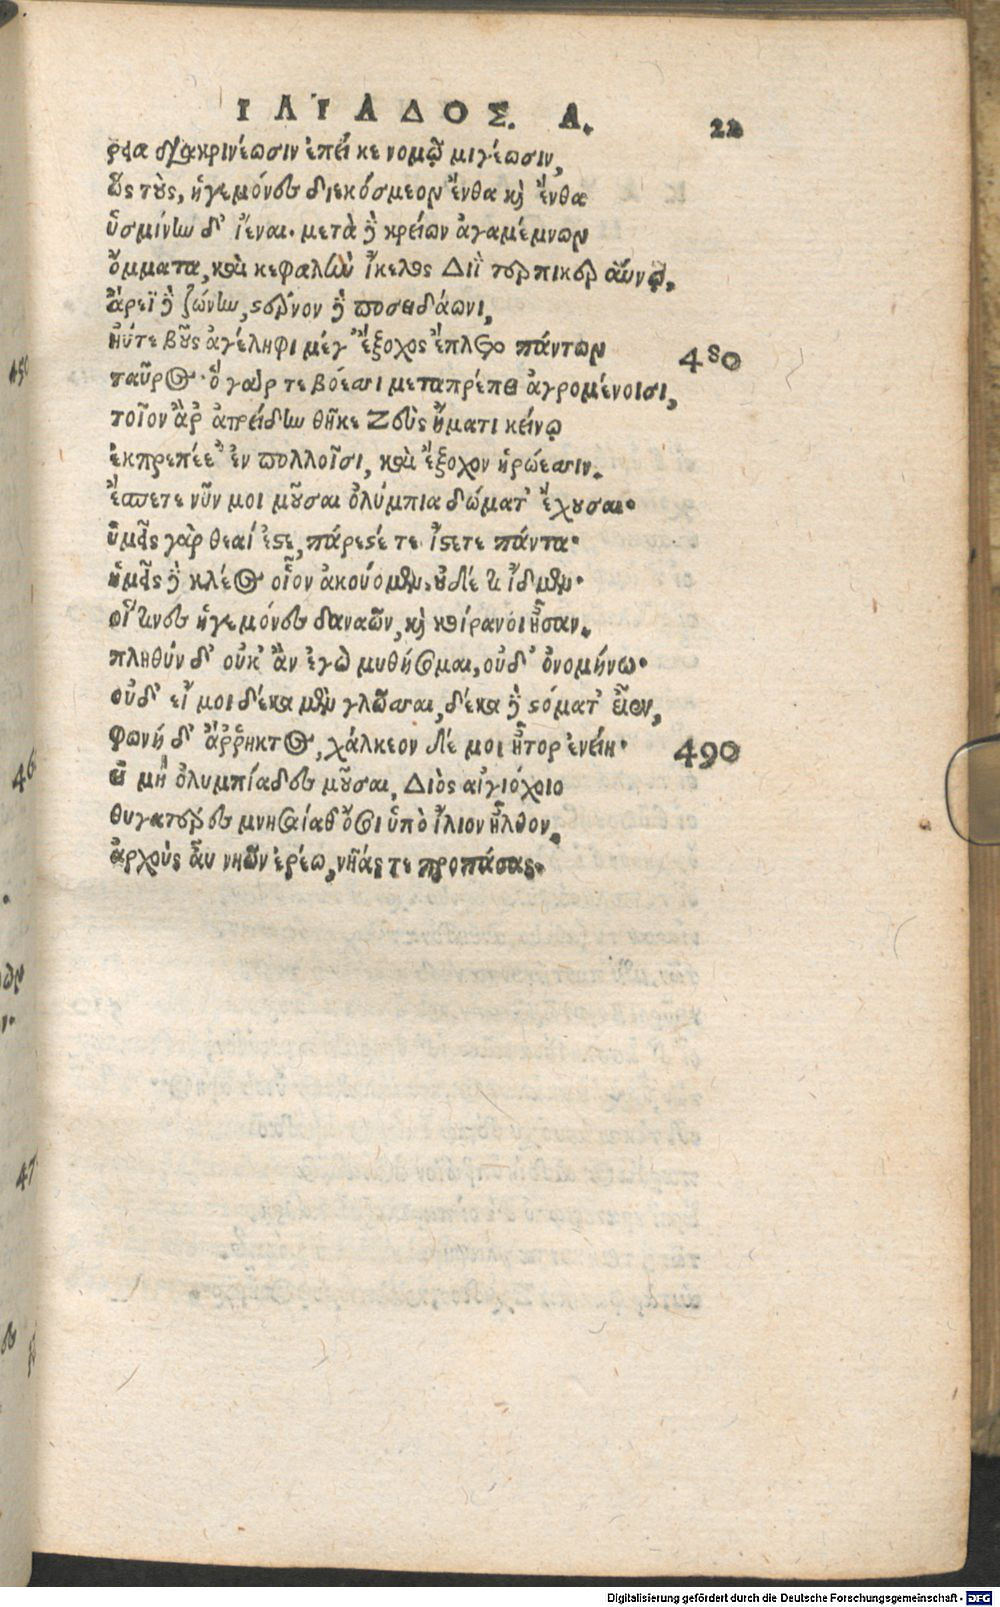 ΙΛΙΑΔΟΣ. Α. 22
ῥεῖα διακρινέωσιν ἐπεί κε νομῷ μιγέωσιν,
ὣς τοὺς, ἡγεμόνες διεκόσμεον ἔνθα καὶ ἔνθα
ὑσμίνην δ' ἰέναι. μετὰ δὲ κρείων ἀγαμέμνων
ὄμματα, καὶ κεφαλὴν ἴκελος Διῒ τερπικεραύνῳ,
ἄρεϊ δὲ ζώνην, στέρνον δὲ ποσειδάωνι,
ἠύτε βοῦς ἀγέληφι μέγ' ἔξοχος ἔπλετο πάντων 480
ταῦρος· ὁ γάρ τε βόεσσι μεταπρέπει ἀγρομένοισι,
τοῖον ἂρ ἀτρείδην θῆκε Ζεὺς ἤματι κείνῳ
ἐκπρεπέε' ἐν πολλοῖσι, καὶ ἔξοχον ἡρώεσσιν.
ἔσπετε νῦν μοι μοῦσαι ὀλύμπια δώματ' ἔχουσαι·
ὑμεῖς γὰρ θεαί ἐστε, πάρεστέ τε ἴστε τε πάντα·
ἡμεῖς δὲ κλέος οἶον ἀκούομεν, οὐδέ τι ἴδμεν·
οἵ τινες ἡγεμόνες δαναῶν, καὶ κοίρανοι ἦσαν.
πληθὺν δ' οὐκ' ἂν ἐγὼ μυθήσομαι, οὐδ' ὀνομήνω·
οὐδ' εἴ μοι δέκα μὲν γλῶσσαι, δέκα δὲ στόματ' εἶεν,
φωνή δ' ἄῤῥηκτος, χάλκεον δέ μοι ἦτορ ἐνείη· 490
εἰ μὴ ὀλυμπίαδες μοῦσαι, Διὸς αἰγιόχοιο
θυγατέρες μνησαίαθ' ὅσοι ὑπὸ ἴλιον ἦλθον.
ἀρχοὺς ἂυ νηῶν ἐρέω, νῆάς τε προπάσας.
Digitalisierung gefördert durch die Deutsche Forschungsgemeinschaft - DFG